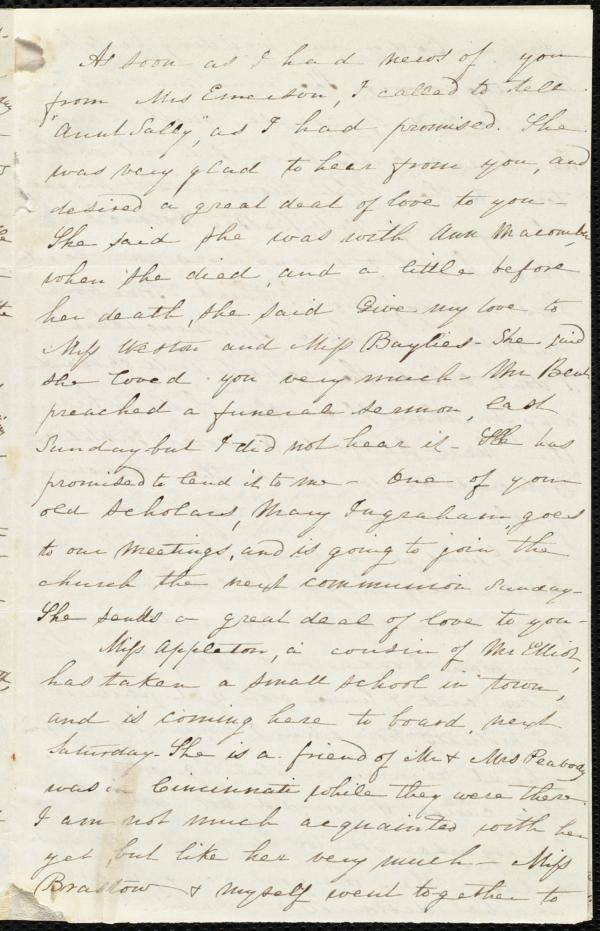 As soon as I had news of you
from Mrs Emerson, I called to tell
"Aunt Sally", as I had promised. She
was very glad to hear from you, and
desired a great deal of love to you -
She said she was with Ann Macomber
when she died, and a little before
her death, she said Give my love to
Miss Weston and Miss Baylies - She said
she loved you very much - Mr
preached a funeral sermon, last
Sunday but I did not hear it - He has
promised to lend it to me - One of your
old scholars, Mary Ingraham, goes
to our meetings, and is going to join the
church the next communion Sunday -
She sends a great deal of love to you -
Miss Appleton, a cousin of Mr Elliot,
has taken a small school in town,
and is coming here to board, next
Saturday - She is a friend of Mr & Mrs Peabody
was in Cincinnati while they were there.
I am not much acquainted with her
yet, but like her very much - Miss
Brastow & myself went together to